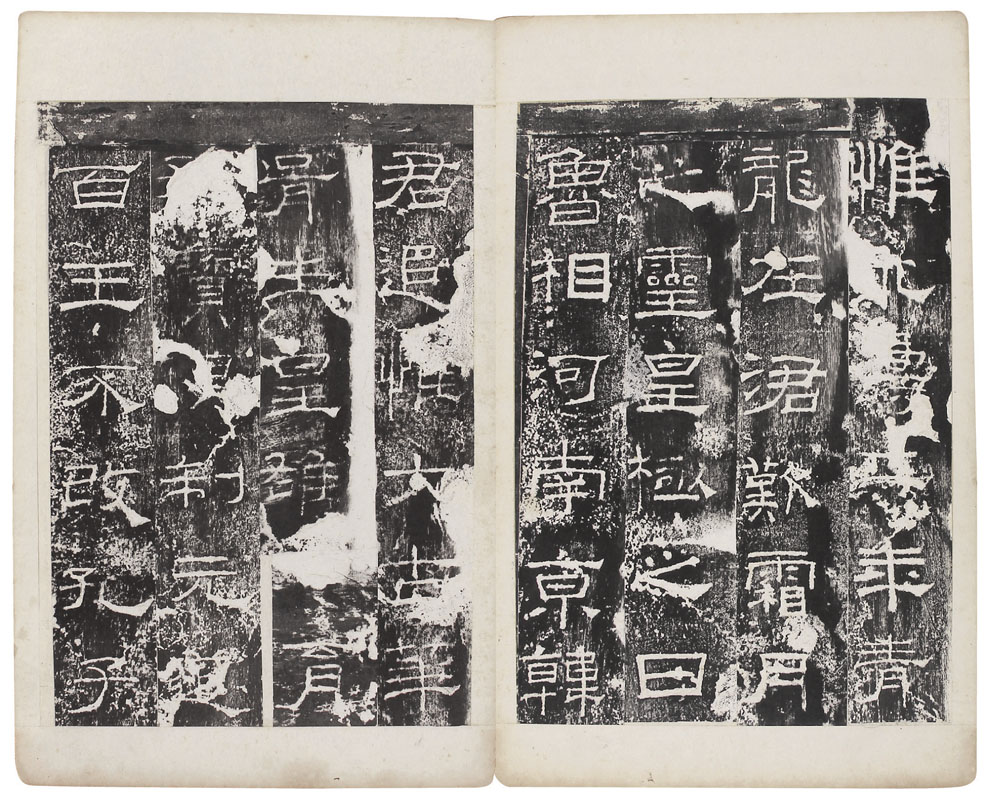 惟永壽二年青
龍在涒歎霜月
之靈皇極之日
魯相河南京韓
君追惟太古華
胥生皇雄育
寶俱制元道
百王不改孔子